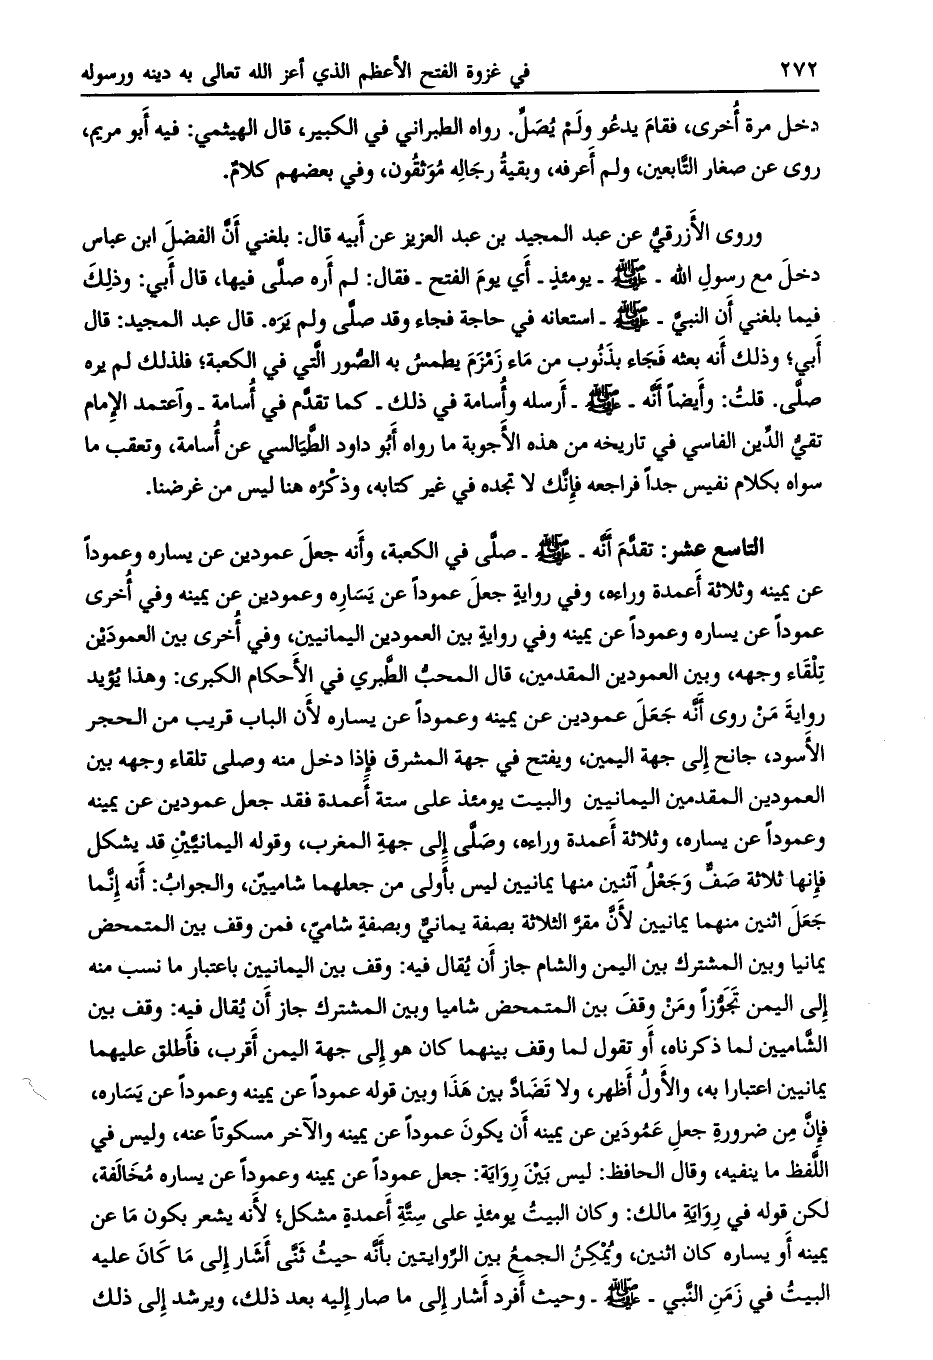 ٢٧٢ في غزوة الفتح الأعظم الذي أعز الله تعالى به دينه ورسوله
دخل مرة أُخرى، فقامَ يدعُو ولَمْ يُصَلِّ. رواه الطبراني في الكبير، قال الهيثمي: فيه أَبو مريم،
روى عن صغار التَّابعين، ولم أَعرفه، وبقيةُ رجَالِه مُوَثقُون، وفي بعضهم كلامٌ.
وروى الأَزرقيُّ عن عبد المجيد بن عبد العزيز عن أَبيه قال: بلغني أَنَّ الفضلَ ابن عباس
دخلَ مع رسولِ الله ـ ﷺ ـ يومئذٍ ـ أَي يومَ الفتح ـ فقال: لم أَره صلَّى فيها، قال أَبي: وذلِكَ
فيما بلغني أَن النبيَّ ـ ﷺ ـ استعانه في حاجة فجاء وقد صلَّى ولم يَرَه. قال عبد المجيد: قال
أَبي؛ وذلك أَنه بعثه فَجَاء بذَنُوب من مَاء زَمْزَمَ يطمسُ به الصُّور الَّتي في الكعبة؛ فلذلك لم يره
صلَّى. قلتُ: وأَيضاً أَنَّه ـ ﷺ ـ أَرسله وأُسامة في ذلك ـ كما تقدَّم في أُسامة ـ وآعتمد الإِمام
تقيُّ الدِّين الفاسي في تاريخه من هذه الأَجوبة ما رواه أَبُو داود الطَّيَالسي عن أُسامة، وتعقب ما
سواه بكلام نفيس جداً فراجعه فإِنَّك لا تجده في غير كتابه، وذكْرُه هنا ليس من غرضنا.
التاسع عشر: تقدَّمَ أَنَّه ـ ﷺ ـ صلَّى في الكعبة، وأَنه جعلَ عمودين عن يساره وعموداً
عن يمينه وثلاثة أَعمدة وراءه، وفي روايةٍ جعلَ عموداً عن يَسَارِه وعمودين عن يمينه وفي أُخرى
عموداً عن يساره وعموداً عن يمينه وفي روايةٍ بين العمودين اليمانيين، وفي أُخرى بين العمودَيْن
تِلْقَاء وجهه، وبين العمودين المقدمين، قال المحبُّ الطَّبري في الأَحكام الكبرى: وهذا يُؤيد
روايةَ مَنْ روى أَنَّه جَعَلَ عمودين عن يمينه وعموداً عن يساره لأَن الباب قريب من الحجر
الأَسود، جانح إِلى جهة اليمين، ويفتح في جهة المشرق فإِذا دخل منه وصلى تلقاء وجهه بين
العمودين المقدمين اليمانيين والبيت يومئذ على ستة أَعمدة فقد جعل عمودين عن يمينه
وعموداً عن يساره، وثلاثة أَعمدة وراءه، وصَلَّى إِلى جهةِ المغرب، وقوله اليمانيَّيْنِ قد يشكل
فإِنها ثلاثة صَفٌّ وَجَعْلُ آثنين منها يمانيين ليس بأَولى من جعلهما شاميين، والجوابُ: أَنه إِنَّما
جَعَلَ اثنين منهما يمانيين لأَنَّ مقرَّ الثلاثة بصفة يمانيٍّ وبصفةٍ شاميّ، فمن وقف بين المتمحض
يمانيا وبين المشترك بين اليمن والشام جاز أَن يُقال فيه: وقف بين اليمانيين باعتبار ما نسب منه
إِلى اليمن تَجَوُّزاً ومَنْ وقفَ بين المتمحض شاميا وبين المشترك جاز أَن يُقال فيه: وقف بين
الشَّاميين لما ذكرناه، أَو تقول لما وقف بينهما كان هو إِلى جهة اليمن أَقرب، فأَطلق عليهما
يمانيين اعتبارا به، والأَولُ أَظهر، ولا تَضَادَّ بين هَذَا وبين قوله عموداً عن يمينه وعموداً عن يَسَاره،
فإِنَّ مِن ضرورةِ جعلِ عَمُودَين عن يمينه أَن يكونَ عموداً عن يمينه والآخر مسكوتاً عنه، وليس في
اللَّفظ ما ينفيه، وقال الحافظ: ليس بَيْنَ رِوَايَة: جعل عموداً عن يمينه وعموداً عن يساره مُخَالَفة،
لكن قوله في رِوَايَةِ مالك: وكان البيتُ يومئذٍ على سِتَّةِ أَعمدةٍ مشكل؛ لأَنه يشعر بكون مَا عن
يمينه أَو يساره كان اثنين، ويُمْكِنُ الجمعُ بين الرِّوايتين بأَنَّه حيثُ ثَنَّى أَشَار إِلى مَا كَانَ عليه
البيتُ في زَمَنِ النَّبي ـ ﷺ ـ وحيث أَفرد أَشار إِلى ما صار إِليه بعد ذلك، ويرشد إِلى ذلك